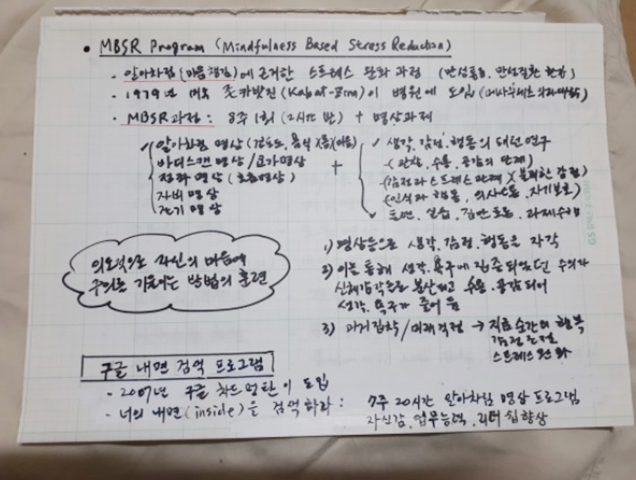 • MBSR Program (Mindfulness Based Stress Reduction)
- 알아차림(마음챙김)에 근거한 스트레스 완화 과정 (만성통증, 만성질환 환자)
- 1979년 미국 존카밧진(Kabat-Zinn)이 병원에 도입
- MBSR과정: 8주 1회(2시간 반) + 명상과제
알아차림 명상
바디스캔명상/요가명상
정좌 명상 (호흡명상)
자비 명상
걷기 명상
+
생각, 감정, 행동의 패턴연구
(관찰, 수용, 공감의 단계)
(감정과 스트레스 관계)(불쾌한 감정)
(인식과 행동, 의사소통, 자기보호)
토론, 실습, 집단토론, 과제수행
의도적으로 자신의 마음에
주의를 기울이는 방법의 훈련
1) 명상등으로 생각, 감정, 행동을 자각
2) 이를 통해 생각, 욕구에 집중되었던 주의가
신체감각으로 분산되고 수용, 공감되어
생각, 욕구가 줄어듬
3) 과거집착/미래걱정 → 지금순간의 행복
감정조절
스트레스 완화
구글 내면 검색 프로그램
- 2007년 구글 차드 멩탄이 도입
- 너의 내면(inside)을 검색하라: 7주 20시간 알아차림 명상 프로그램
자신감, 업무능력, 리더십향상